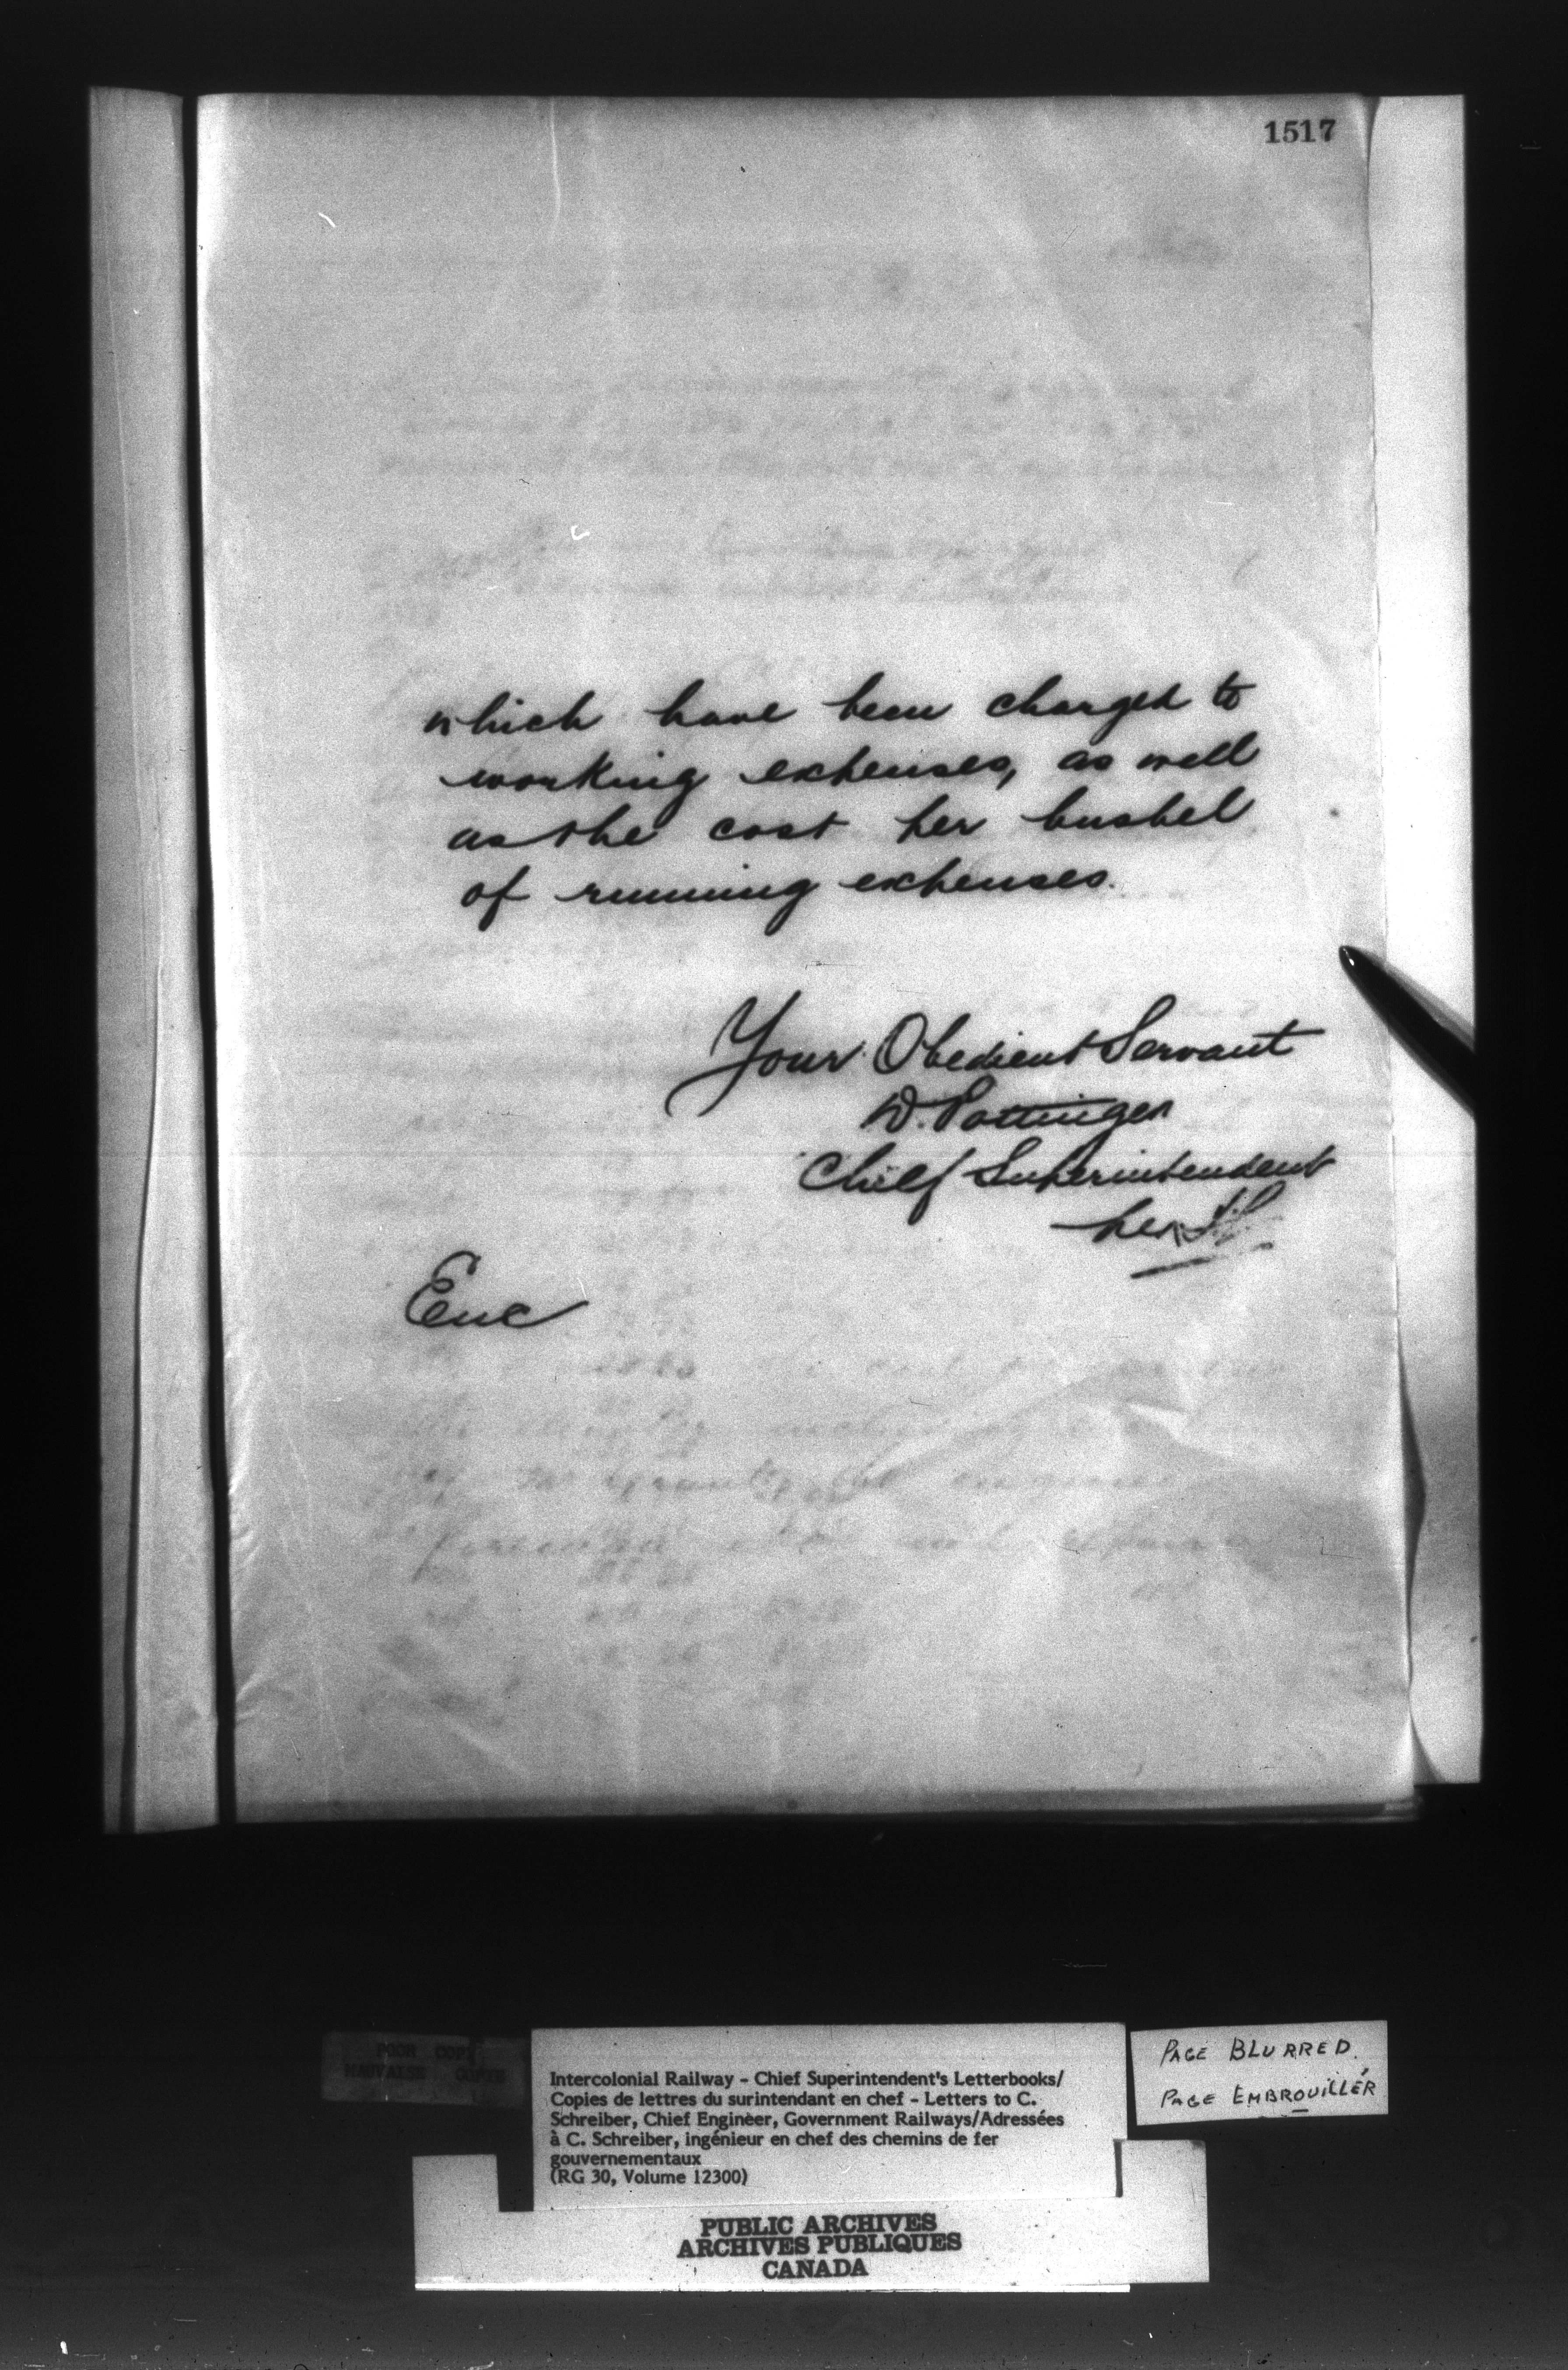 1517
which have been charged to
working expenses, as well
as the cost per bushel
of running expenses.
Your Obedient Servant
D. Pottinger
Chief Superintendent
per
Enc
POOR COPY
MAUVAISE COPIE
Intercolonial Railway - Chief Superintendent's Letterbooks/
Copies de lettres du surintendant en chef - Letters to C.
Schreiber, Chief Engineer, Government Railways/Adressées
à C. Schreiber, ingénieur en chef des chemins de fer
gouvernementaux
(RG 30, Volume 12300)
PAGE BLURRED.
PAGE EMBROUILLÉR
PUBLIC ARCHIVES
ARCHIVES PUBLIQUES
CANADA